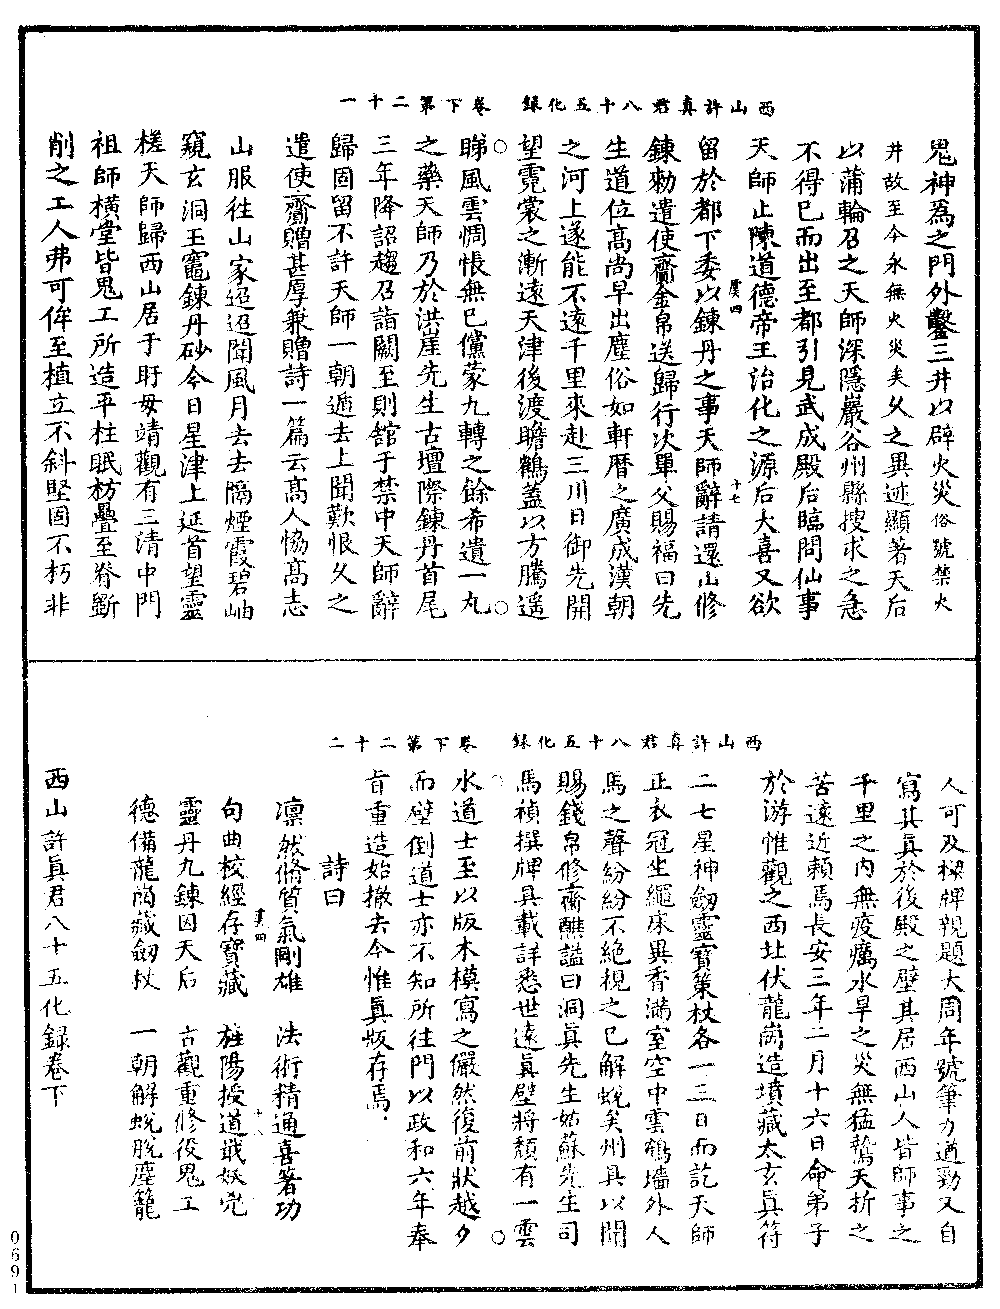 西山許真君八十五化録　卷下第二十一
鬼神爲之門外鑿三井以辟火災俗號禁火
井故至今永無火災矣父之異迹顯著天后
以蒲輪召之天師深隱巖谷州縣搜求之急
不得已而出至都引見武成殿后臨問仙事
天師止陳道德帝王治化之源后大喜又欲
虞四
十七
留於都下委以鍊丹之事天師辭請還山修
鍊勑遣使齎金帛送歸行次單父賜襦曰先
生道位高尚早出塵俗如軒曆之廣成漢朝
之河上遂能不遠千里來赴三川日御先開
望霓裳之漸遠天津後渡瞻鶴蓋以方騰遥
睇風雲惆悵無已儻蒙九轉之餘希遺一丸
之藥天師乃於洪崖先生古壇際鍊丹首尾
三年降詔趨召詣闕至則舘于禁中天師辭
歸固留不許天師一朝遁去上聞歎恨久之
遣使齎贈甚厚兼贈詩一篇云高人恊高志
山服往山家迢迢聞風月去去隔煙霞碧岫
窺玄洞玉竈鍊丹砂今日星津上延首望靈
槎天師歸西山居于盱母靖觀有三清中門
祖師橫堂皆鬼工所造平柱眠枋疊至脊斲
削之工人弗可侔至植立不斜堅固不朽非
西山許真君八十五化録　卷下第二十二
人可及榜牌親題大周年號筆力遒勁又自
寫其真於後殿之壁其居西山人皆師事之
千里之内無疫癘水旱之災無猛鷙夭折之
苦遠近賴焉長安三年二月十六日命弟子
於游惟觀之西址伏龍崗造墳藏太玄真符
二七星神劒靈寶策杖各一三日而訖天師
正衣冠坐繩床異香滿室空中雲鶴墻外人
馬之聲紛紛不絶視之已解蛻矣州具以聞
賜錢帛修齋醮謚曰洞真先生姑蘇先生司
馬禎撰牌具載詳悉世遠真壁將頹有一雲
水道士至以版木模寫之儼然復前狀越夕
而壁倒道士亦不知所往門以政和六年奉
旨重造始撤去今惟真版存焉
詩曰
凛然脩質氣剛雄　法術精通喜著功
虞四
十八
句曲校經存寶藏　旌陽授道戢妖兇
靈丹九鍊因天后　古觀重修役鬼工
德備龍崗藏劒杖　一朝解蛻脱塵籠
西山許真君八十五化録卷下
0691